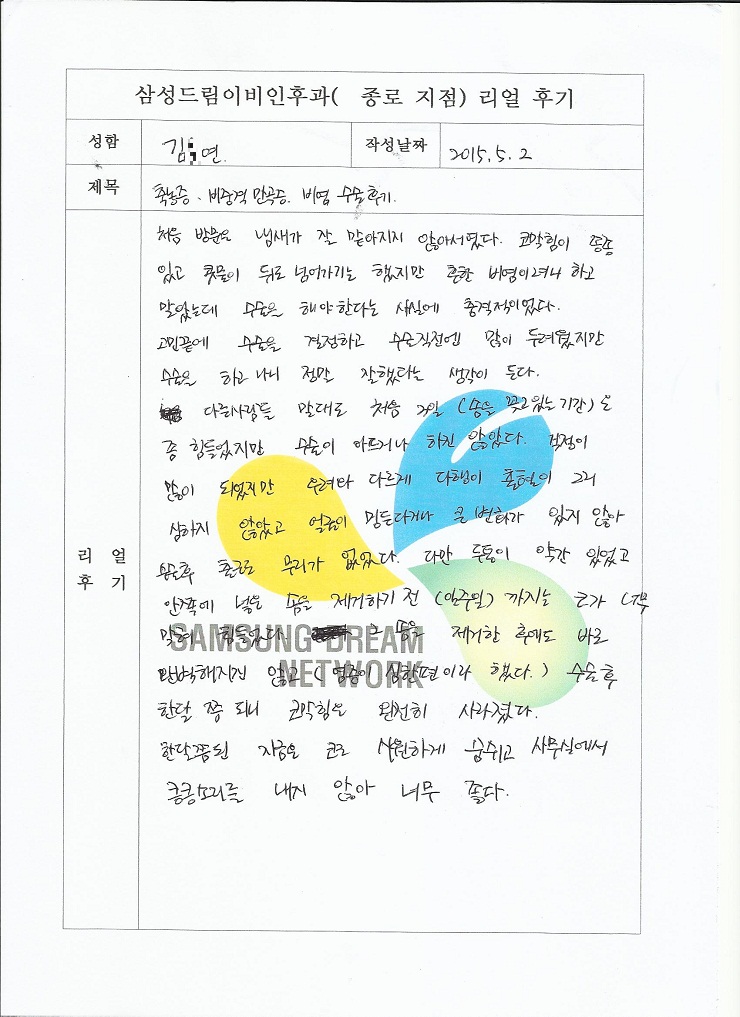 삼성드림이비인후과( 종로 지점) 리얼 후기
성함 김 연. 작성날짜 2015.5.2
제목 축농증, 비중격 만곡증, 비염 수술후기.
처음 방문은 냄새가 잘 맡아지지 않아서였다. 코막힘이 종종
있고 콧물이 뒤로 넘어가기는 했지만 흔한 비염이려니 하고
말았는데 수술을 해야한다는 사실에 충격적이었다.
고민끝에 수술을 결정하고 수술직전엔 맘이 두려웠지만
수술을 하고 나니 정말 잘했다는 생각이 든다.
다른사람들 말대로 처음 2일 (솜을 꽂고있는기간)은
좀 힘들었지만 수술이 아프거나 하진 않았다. 걱정이
많이 되었지만 우려와 다르게 다행이 출혈이 그리
심하지 않았고 얼굴이 멍든다거나 큰 변화가 있지 않아
수술후 출근도 무리가 없었다. 다만 두통이 약간 있었고
안쪽에 넣은 솜을 제거하기 전 (일주일) 까지는 코가 너무
막혀 힘들었다. 그 솜을 제거한 후에도 바로
완벽해지진 않고 (염증이 심한편이라 했다.) 수술후
한달 쯤 되니 코막힘은 완전히 사라졌다.
한달쯤된 지금은 코로 시원하게 숨쉬고 사무실에서
킁킁소리를 내지 않아 너무 좋다.
리 얼
후 기
SAMSUNG DREAM
NETWORK